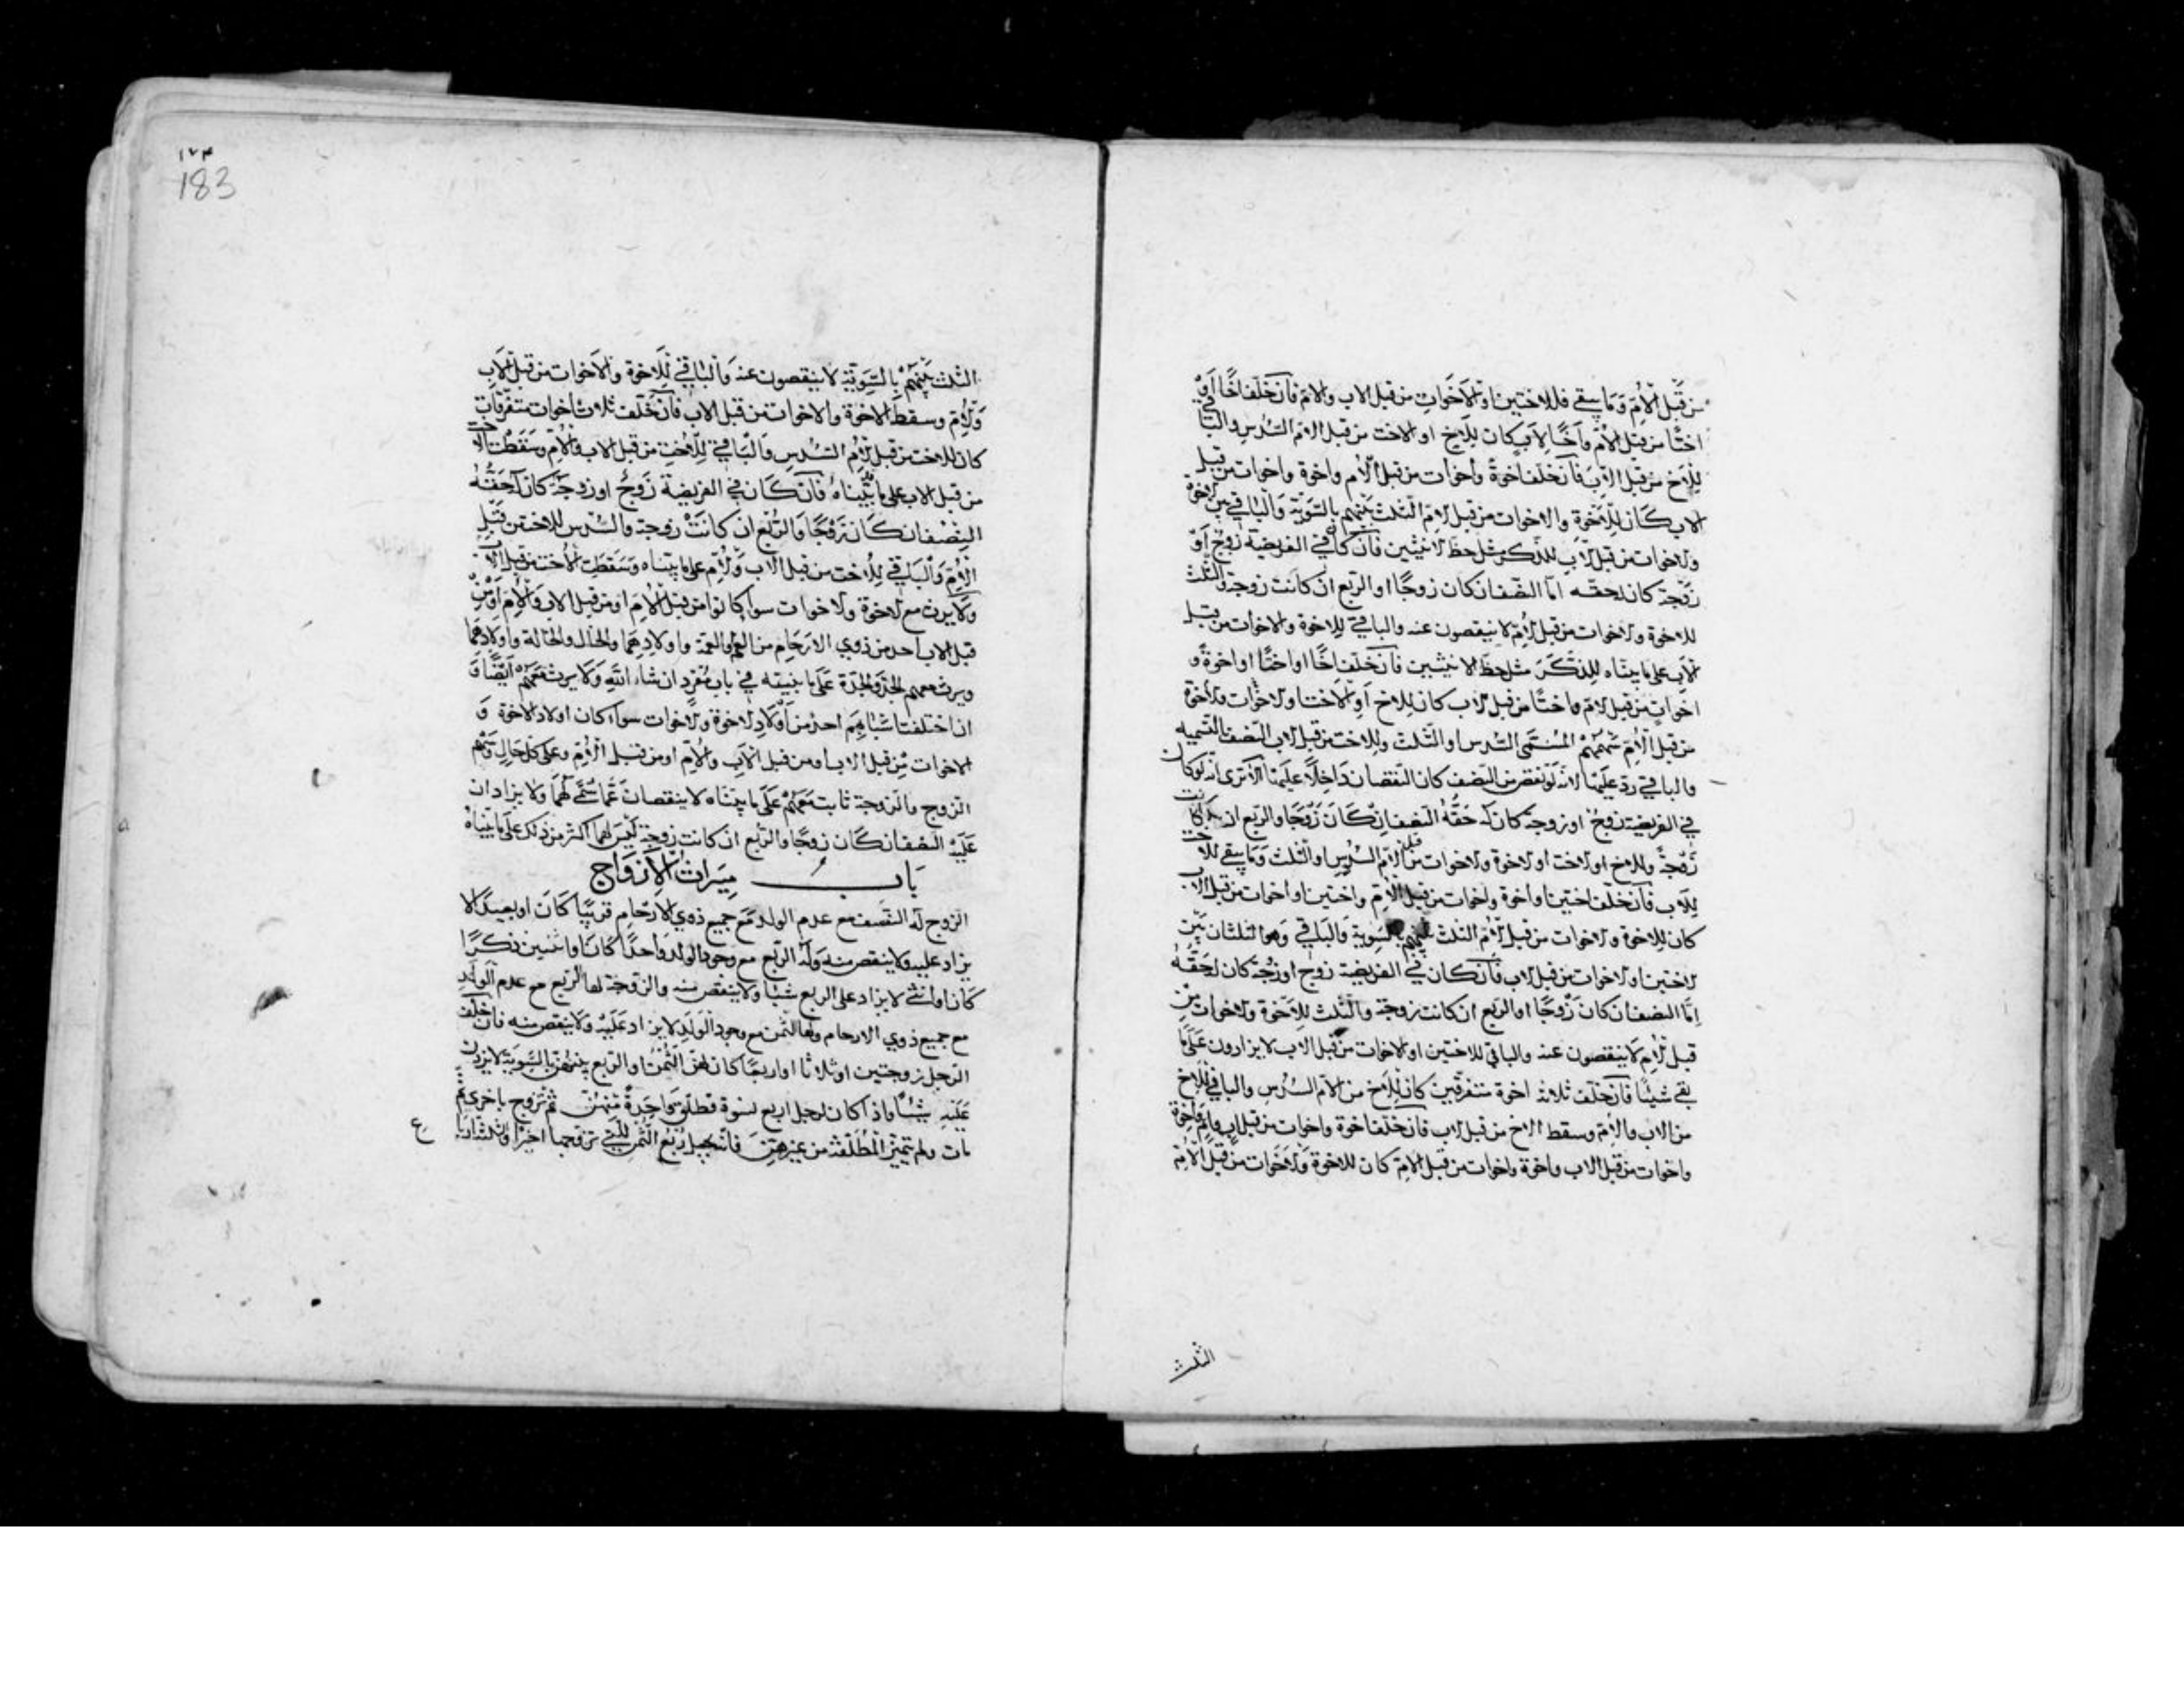 من قبل الأم وما يبقى فللاختين او الاخوات من قبل الاب والام فان خلف اخا او
اختا من قبل الأم واخا لاب كان للاخ او الاخت من قبل الام السدس والباقي
للاخ من قبل الاب فان خلف اخوة واخوات من قبل الأم واخوة واخوات من قبل
الاب كان للاخوة والاخوات من قبل الام الثلث بينهم بالسوية والباقي بين الاخوة
والاخوات من قبل الاب للذكر مثل حظ الانثيين فان كان في الفريضة زوج او
زوجة كان له حقه اما النصف ان كان زوجا او الربع ان كانت زوجة والثلث
للاخوة والاخوات من قبل الام لا ينقصون عنه والباقي للاخوة والاخوات من قبل
الاب على ما بيناه للذكر مثل حظ الانثيين فان خلف اخا او اختا او اخوة و
اخوات من قبل الام واختا من قبل الاب كان للاخ او الاخت او الاخوات والاخوة
من قبل الام سهمهم المسمى السدس او الثلث وللاخت من قبل الاب النصف بالتسمية
والباقي رد عليها لانه لو نقص من النصف كان النقصان داخلا عليها الا ترى انه لو كان
في الفريضة زوج او زوجة كان له حقه النصف ان كان زوجا والربع ان كانت
زوجة وللاخ او الاخت او الاخوة والاخوات من قبل الام السدس او الثلث وما يبقى للاخت
للاب فان خلف اختين او اخوة واخوات من قبل الأم واختين او اخوات من قبل الاب
كان للاخوة والاخوات من قبل الأم الثلث بينهم بالسوية والباقي وهو الثلثان بين
الاختين او الاخوات من قبل الاب فان كان في الفريضة زوج او زوجة كان له حقه
إما النصف ان كان زوجا او الربع ان كانت زوجة والثلث للاخوة والاخوات من
قبل الام لا ينقصون عنه والباقي للاختين او الاخوات من قبل الاب لا يزادون على ما
بقي شيئا فان خلف ثلاثة اخوة متفرقين كان للاخ من الام السدس والباقي للاخ
من الاب والام وسقط الاخ من قبل الاب فان خلف اخوة واخوات من قبل اب وام واخوة
واخوات من قبل الاب واخوة واخوات من قبل الام كان للاخوة والاخوات من قبل الام
الثلث
١٧٣
183
الثلث بينهم بالسوية لا ينقصون عنه والباقي للاخوة والاخوات من قبل الاب
والام وسقط الاخوة والاخوات من قبل الاب فان خلف ثلاث اخوات متفرقات
كان للاخت من قبل الام السدس والباقي للاخت من قبل الاب والأم وسقطت الاخت
من قبل الاب على ما بيناه فان كان في الفريضة زوج او زوجة كان له حقه
النصف ان كان زوجا والربع ان كانت زوجة والسدس للاخت من قبل
الام والباقي للاخت من قبل الاب والام على ما بيناه وسقطت الاخت من قبل الاب
ولا يرث مع الاخوة والاخوات سواء كانوا من قبل الام او من قبل الاب والام او من
قبل الاب احد من ذوي الارحام من العم والعمة واولادهما والخال والخالة واولادهما
ويرث معهم الجد والجدة على ما نبينه في باب مفرد ان شاء الله ولا يرث معهم ايضا و
ان اختلفت اسبابهم احد من أولاد الاخوة والاخوات سواء كان اولاد الاخوة و
الاخوات من قبل الاب او من قبل الاب والام او من قبل الأم وعلى كل حال وسهم
الزوج والزوجة ثابت معهم على ما بيناه لا ينقصان عما سمي لهما ولا يزادان
عليه النصف ان كان زوجا والربع ان كانت زوجة ليس لهما اكثر من ذلك على ما بيناه
باب ميراث الازواج
الزوج له النصف مع عدم الولد مع جميع ذوي الارحام قريبا كان او بعيدا لا
يزاد عليه ولا ينقص منه وله الربع مع وجود الولد واحدا كان او اثنين ذكرا
كان او انثى لا يزاد على الربع شيئا ولا ينقص منه والزوجة لها الربع مع عدم الولد
مع جميع ذوي الارحام ولها الثمن مع وجود الولد لا يزاد عليه ولا ينقص منه فان خلف
الرجل زوجتين او ثلاثا او اربعا كان لهن الثمن او الربع بينهن بالسوية لا يزدن
عليه شيئا واذا كان لرجل اربع نسوة فطلق واحدة منهن ثم تزوج باخرى ثم
مات ولم تتميز المطلقة من غيرهن فانه يجعل ربع الثمن للتي تزوجها اخيرا وثلثة ارباع